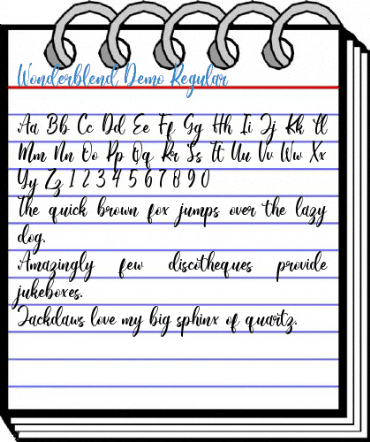 Wonderblend Demo Regular
Aa Bb Cc Dd Ee Ff Gg Hh Ii Jj Kk Ll
Mm Nn Oo Pp Qq Rr Ss Tt Uu Vv Ww Xx
Yy Zz 1 2 3 4 5 6 7 8 9 0
The quick brown fox jumps over the lazy
dog.
Amazingly few discotheques provide
jukeboxes.
Jackdaws love my big sphinx of quartz.